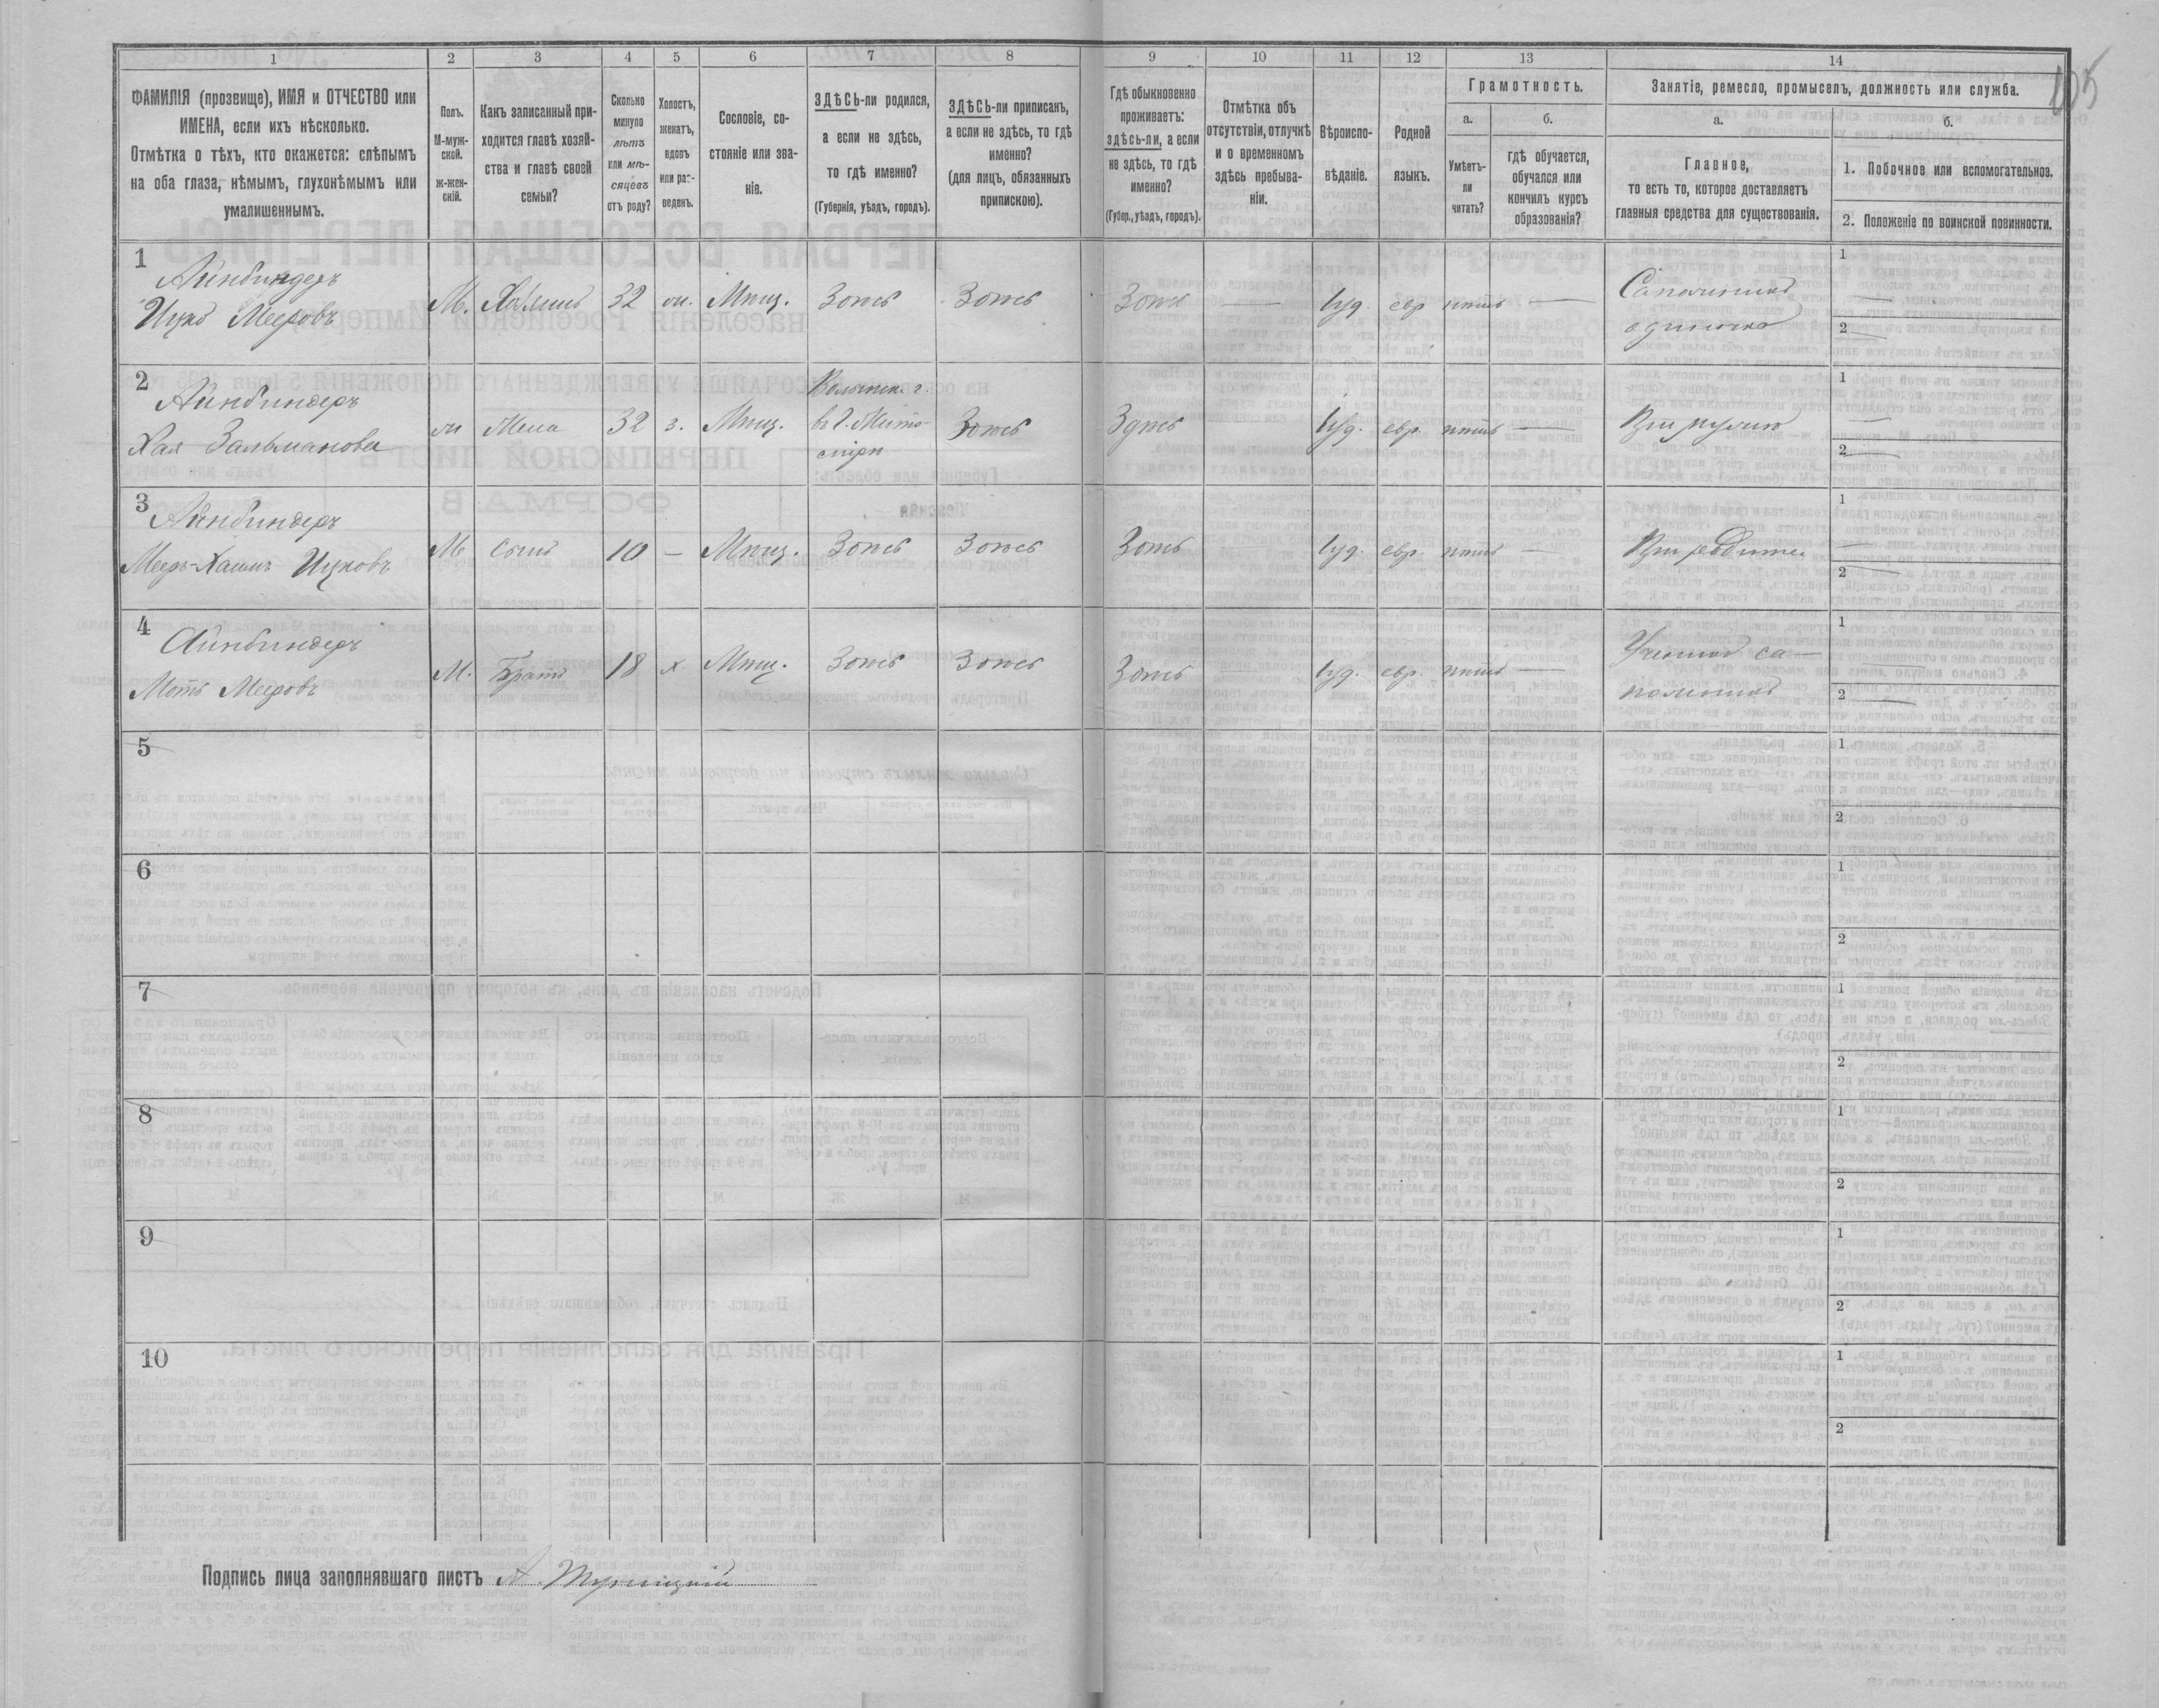 105
1 2 3 4 5 6 7 8 9 10 11 12 13 14
ФАМИЛІЯ (прозвище), ИМЯ и ОТЧЕСТВО или
ИМЕНА, если ихъ нѣсколько.
Отмѣтка о тѣхъ, кто окажется: слѣпымъ
на оба глаза, нѣмымъ, глухонѣмымъ или
умалишеннымъ.
Полъ.
М-муж-
ской.
Ж-жен-
скій.
Какъ записанный при-
ходится главѣ хозяй-
ства и главѣ своей
семьи?
Сколько
минуло
лѣтъ
или мѣ-
сяцевъ
отъ роду?
Холостъ,
женатъ,
вдовъ
или раз-
веденъ.
Сословіе, со-
стояніе или зва-
ніе.
ЗДѢСЬ-ли родился,
а если не здѣсь,
то гдѣ именно?
(Губернія, уѣздъ, городъ).
ЗДѢСЬ-ли приписанъ,
а если не здѣсь, то гдѣ
именно?
(для лицъ, обязанныхъ
припискою).
Гдѣ обыкновенно
проживаетъ:
здѣсь-ли, а если
не здѣсь, то гдѣ
именно?
(Губер., уѣздъ, городъ).
Отмѣтка объ
отсутствіи, отлучкѣ
и о временномъ
здѣсь пребыва-
ніи.
Вѣроиспо-
вѣданіе.
Родной
языкъ.
Грамотность.
а.
Умѣетъ-
ли
читать?
б.
гдѣ обучается,
обучался или
кончилъ курсъ
образованія?
Занятіе, ремесло, промыселъ, должность или служба.
а.
Главное,
то есть то, которое доставляетъ
главныя средства для существованія.
б.
1. Побочное или вспомогательное.
2. Положеніе по воинской повинности.
1
Айнбиндеръ
Ицко Мееровъ
М. Хозяинъ 32 Мѣщ. Здѣсь Здѣсь Здѣсь — Іуд. евр нѣтъ —
Сапожникъ
одиночка
1 —
2 —
2
Айнбиндеръ
Хая Зальманова
Жена 32 з. Мѣщ.
Волынск. г.
въ г. Жито-
мірѣ
Здѣсь Здѣсь Іуд. евр. нѣтъ —
При мужѣ
1 —
2 —
3
Айнбиндеръ
Мееръ-Хаимъ Ицковъ
М Сынъ 10 — Мѣщ. Здѣсь Здѣсь Здѣсь Іуд. евр. нѣтъ —
При
1 —
2 —
4
Айнбиндеръ
Моть Мееровъ
М. Братъ 18 х. Мѣщ. Здѣсь Здѣсь Здѣсь Іуд. евр. нѣтъ —
Ученикъ са-
пожника
1 —
2 —
5 1
2
6 1
2
7 1
2
8 1
2
9 1
2
10 1
2
Подпись лица заполнявшаго листъ А.